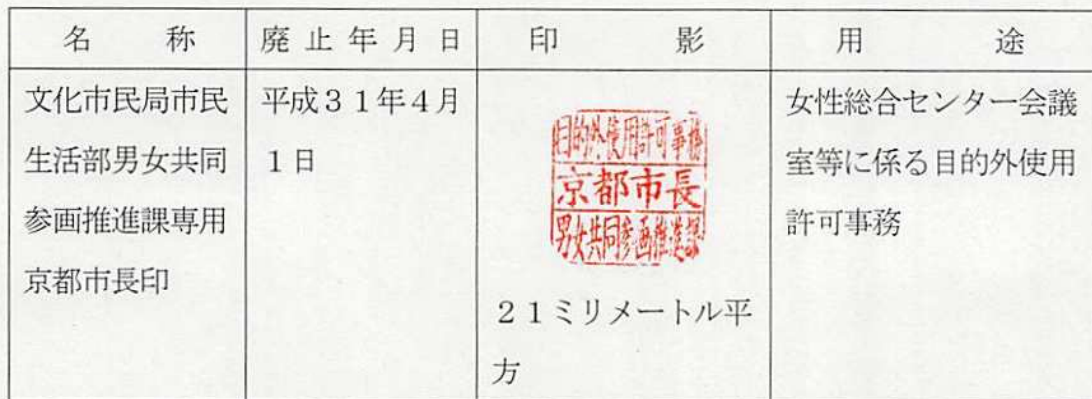 名称 廃止年月日 印影 用途
文化市民局市民
生活部男女共同
参画推進課専用
京都市長印
平成31年4月
1日
目的外使用許可事務
京都市長
男女共同参画推進課
21ミリメートル平
方
女性総合センター会議
室等に係る目的外使用
許可事務